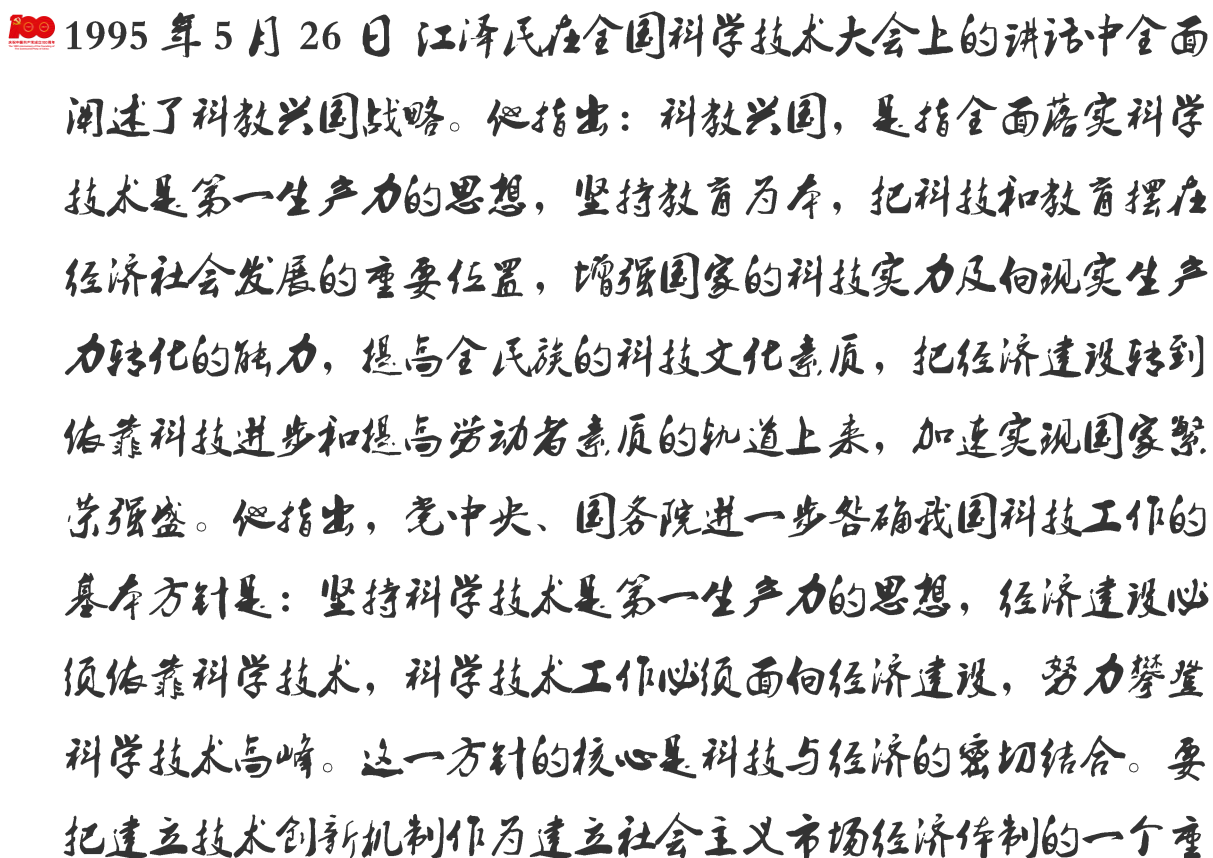 1995 年 5 月 26 日 江泽民在全国科学技术大会上的讲话中全面
阐述了科教兴国战略。他指出：科教兴国，是指全面落实科学
技术是第一生产力的思想，坚持教育为本，把科技和教育摆在
经济社会发展的重要位置，增强国家的科技实力及向现实生产
力转化的能力，提高全民族的科技文化素质，把经济建设转到
依靠科技进步和提高劳动者素质的轨道上来，加速实现国家繁
荣强盛。他指出，党中央、国务院进一步明确我国科技工作的
基本方针是：坚持科学技术是第一生产力的思想，经济建设必
须依靠科学技术，科学技术工作必须面向经济建设，努力攀登
科学技术高峰。这一方针的核心是科技与经济的密切结合。要
把建立技术创新机制作为建立社会主义市场经济体制的一个重